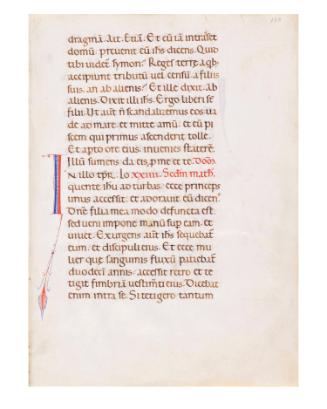 dragma. Ait. Etiā. Et cū intrasset
domū. preuenit eū ihs dicens. Quid
tibi uidet symon. Reges terre. a qb;
accipiunt tributū uel censū. a filiis
suis. an ab alienis. Et ille dixit. ab
alienis. Dixit illi ihs. Ergo liberi sē
filii. Ut aut n̄ scandalizemus eos. ua
de ad mare. et mitte amū. et eū pi
scem qui primus ascenderit tolle.
Et apto ore eius. inuenies staterē.
Illū sumens da eis. p me et te. Dom̄.
IN illo tpr. Lo xxiiii. Scdm math.
quente ihu ad turbas. ecce princeps
unus accessit. et adorauit eū dicen.
Dne filia mea modo defuncta est.
sed ueni impone manū sup eam. et
uiuet. Exurgens aut ihs sequebat
eum. et discipuli eius. Et ecce mu
lier que sanguinis fluxū patiebat
duodeci annis. accessit retro et te
tigit fimbriā uestimti eius. Dicebat
enim intra se. Si tetigero tantum